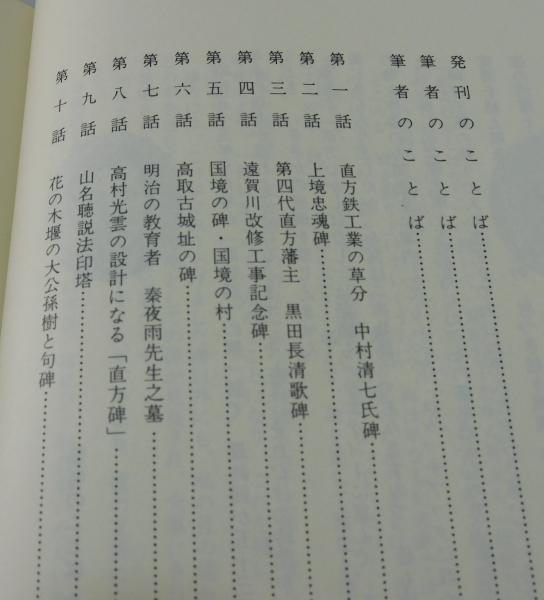 発刊のことば
筆者のことば
筆者のことば
第一話 直方鉄工業の草分 中村清七氏碑
第二話 上境忠魂碑
第三話 第四代直方藩主 黒田長清歌碑
第四話 遠賀川改修工事記念碑
第五話 国境の碑・国境の村
第六話 高取古城址の碑
第七話 明治の教育者 秦夜雨先生之墓
第八話 高村光雲の設計になる「直方碑」
第九話 山名聴説法印塔
第十話 花の木堰の大公孫樹と句碑